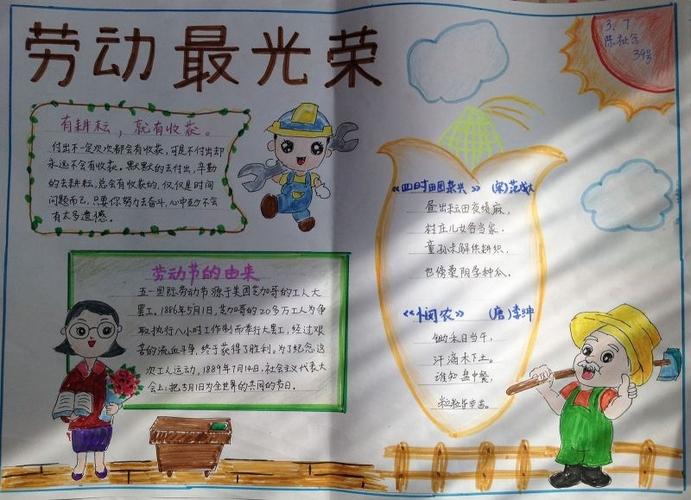 劳动最光荣
3.7
39号
有耕耘，就有收获。
付出不一定次次都会有收获，可是不付出却
永远不会有收获。默默的去付出，辛勤
的去耕耘，总会有收获的，仅仅是时间
问题而已，只要你努力去奋斗，心中也不会
有太多遗憾。
劳动节的由来
五一国际劳动节源于美国芝加哥的工人大
罢工，1886年5月1日，芝加哥的20多万工人为争
取执行八小时工作制而举行大罢工，经过艰
苦的流血斗争，终于获得了胜利。为了纪念这
次工人运动，1889年7月14日，社会主义代表大
会上，把5月1日为全世界的共同的节日。
《四时田园杂兴》(宋)范成大
昼出耘田夜绩麻，
村庄儿女各当家，
童孙未解供耕织，
也傍桑阴学种瓜。
《悯农》(唐)李绅
锄禾日当午，
汗滴禾下土。
谁知盘中餐，
粒粒皆辛苦。